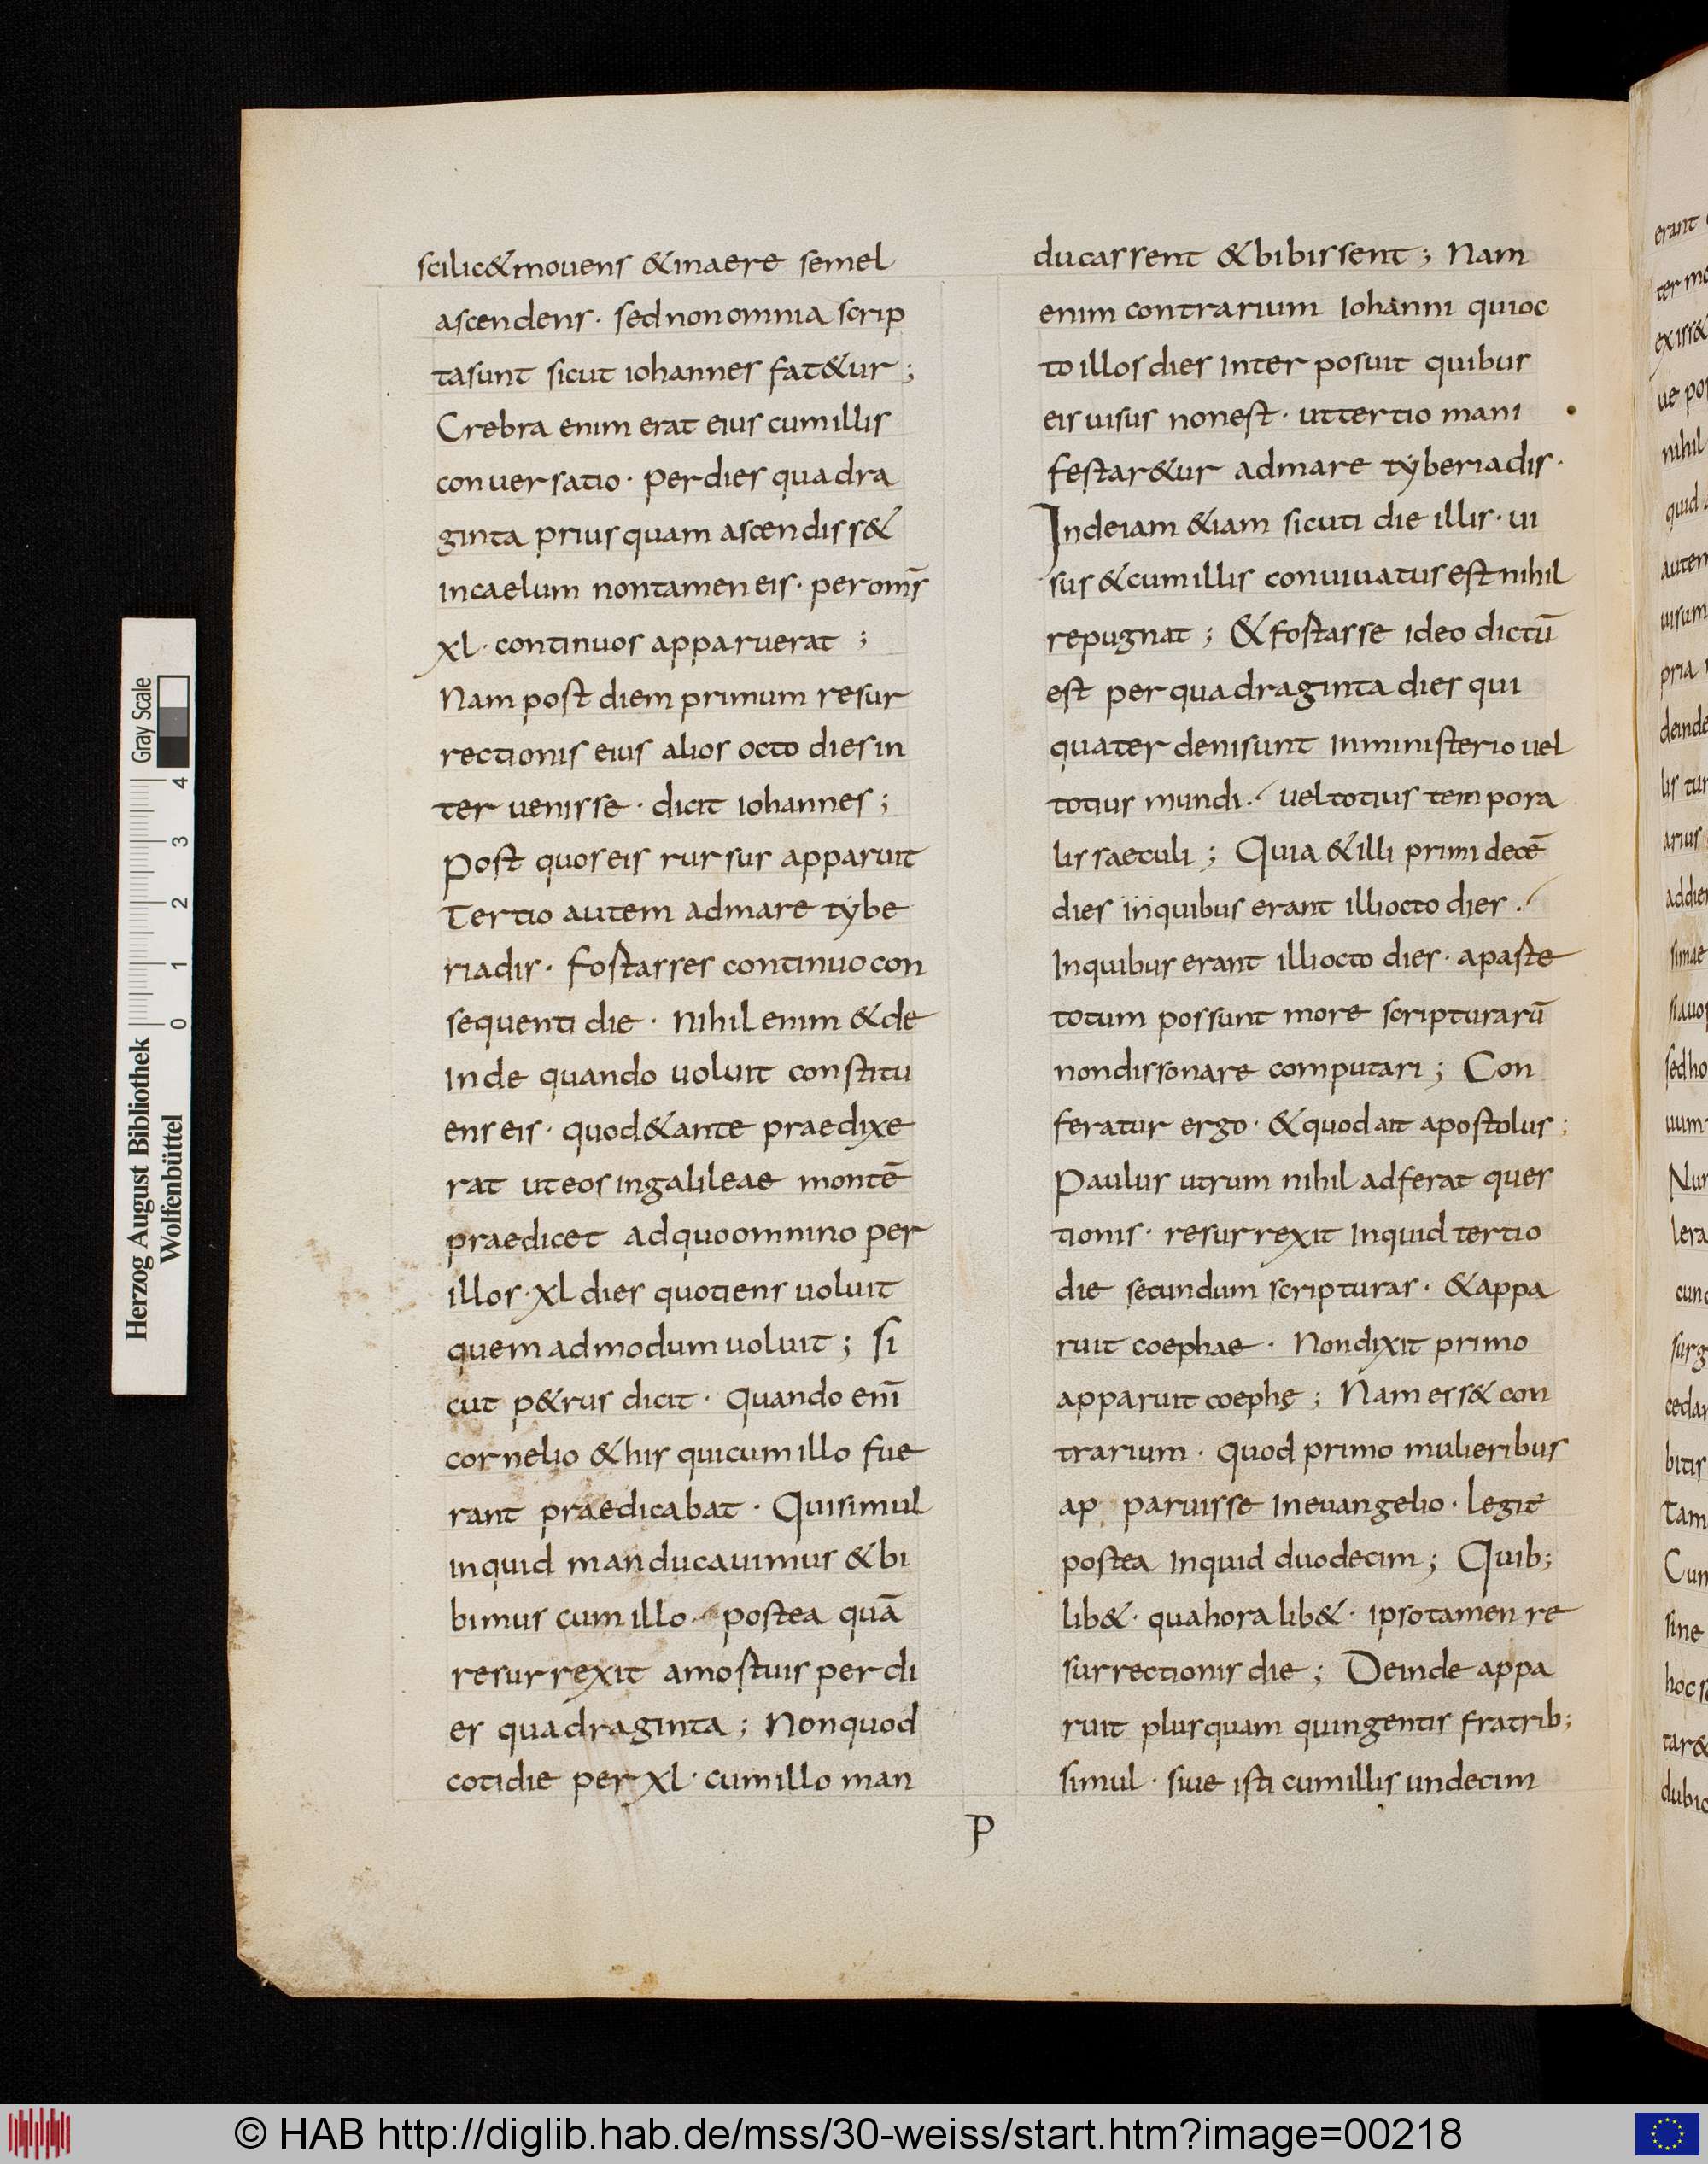 scilic&mouens &inaere semel
ascendens · sed non omnia scrip
ta sunt sicut iohannes fat&ur ;
Crebra enim erat eius cum illis
conuersatio · per dies quadra
ginta prius quam ascendiss&
in caelum non tamen eis · per om̄s
xl · continuos apparuerat ;
Nam post diem primum resur
rectionis eius alios octo dies in
ter uenisse · dicit iohannes ;
post quos eis rursus apparuit
Tertio autem ad mare tẏbe
riadis · fostasses continuo con
sequenti die · Nihil enim &de
inde quando uoluit constitu
ens eis · quod &ante praedixe
rat ut eos in galileae montē
praedicet ad quo omnino per
illos · xl dies quotiens uoluit
quem ad modum uoluit ; Si
cut p&rus dicit · Quando enī
cornelio &his qui cum illo fue
rant praedicabat · Qui simul
inquid manducauimus &bi
bimus cum illo · postea quā
resurrexit amostuis per di
es quadraginta ; Non quod
cotidie per xl · cum illo man
ducassent &bibissent ; Nam
enim contrarium Iohanni qui oc
to illos dies interposuit quibus
eis uisus non est · ut tertio mani
festar&ur ad mare tẏberiadis ·
Inde iam &iam sicuti die illis · ui
sus &cum illis conuiuatus est nihil
repugnat ; &fostasse ideo dictū
est per quadraginta dies qui
quater deni sunt in ministerio uel
totius mundi · uel totius tempora
lis saeculi ; Quia &illi primi decē
dies in quibus erant illi octo dies ·
In quibus erant illi octo dies · a paste
totum possunt more scripturarū
non dissonare computari ; Con
feratur ergo · &quod ait apostolus ;
Paulus utrum nihil adferat ques
tionis · resurrexit inquid tertio
die secundum scripturas · &appa
ruit coephae · Non dixit primo
apparuit coephę ; Nam ess& con
trarium · quod primo mulieribus
ap paruisse in euangelio · legit̄
postea inquid duodecim ; Quib;
lib& · qua hora lib& · ipso tamen re
surrectionis die ; Deinde appa
ruit plusquam quingentis fratrib;
simul · siue isti cum illis undecim
P
Herzog August Bibliothek
Wolfenbüttel
0 1 2 3 4
Gray Scale
© HAB http://diglib.hab.de/mss/30-weiss/start.htm?image=00218